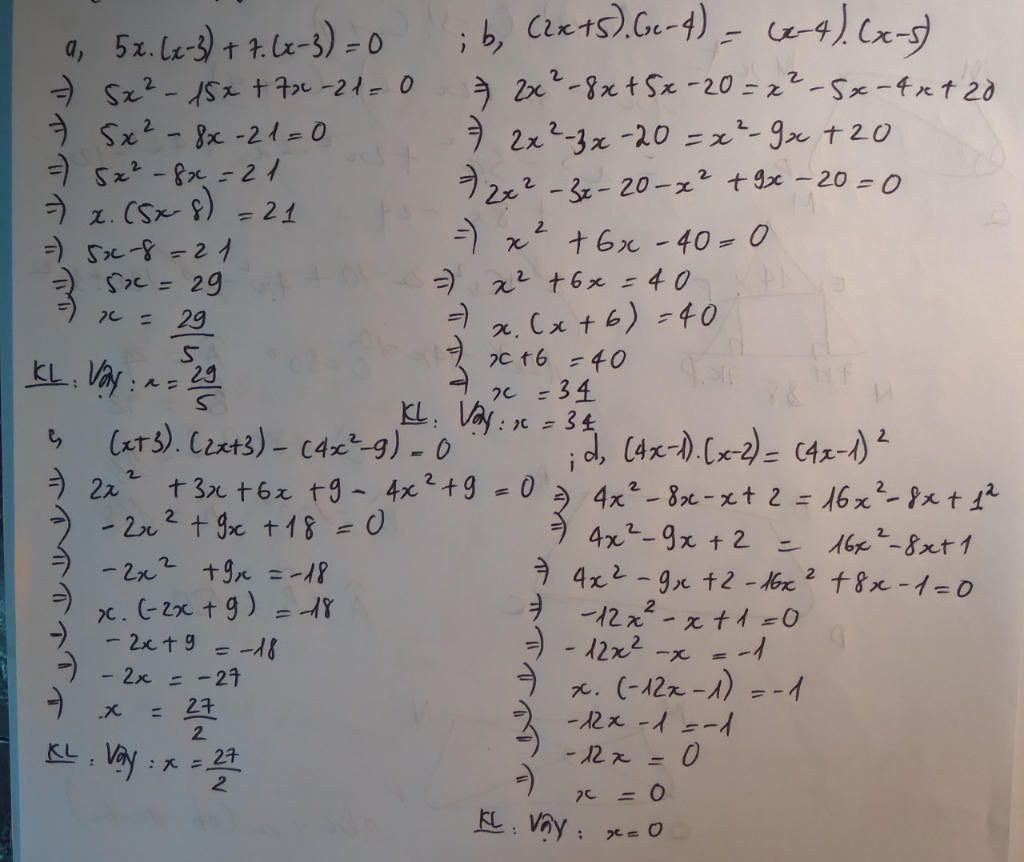 a, 5x.(x-3) + 7.(x-3) = 0
=> 5x² - 15x + 7x - 21 = 0
=> 5x² - 8x - 21 = 0
=> 5x² - 8x = 21
=> x.(5x-8) = 21
=> 5x-8 = 21
=> 5x = 29
=> x = 29/5
KL: Vậy: x = 29/5
; b, (2x+5).(x-4) = (x-4).(x-5)
=> 2x² - 8x + 5x - 20 = x² - 5x - 4x + 20
=> 2x² - 3x - 20 = x² - 9x + 20
=> 2x² - 3x - 20 - x² + 9x - 20 = 0
=> x² + 6x - 40 = 0
=> x² + 6x = 40
=> x.(x+6) = 40
=> x+6 = 40
=> x = 34
KL: Vậy: x = 34
c, (x+3).(2x+3) - (4x²-9) = 0
=> 2x² + 3x + 6x + 9 - 4x² + 9 = 0
=> -2x² + 9x + 18 = 0
=> -2x² + 9x = -18
=> x.(-2x+9) = -18
=> -2x+9 = -18
=> -2x = -27
=> x = 27/2
KL: Vậy: x = 27/2
; d, (4x-1).(x-2) = (4x-1)²
=> 4x² - 8x - x + 2 = 16x² - 8x + 1²
=> 4x² - 9x + 2 = 16x² - 8x + 1
=> 4x² - 9x + 2 - 16x² + 8x - 1 = 0
=> -12x² - x + 1 = 0
=> -12x² - x = -1
=> x.(-12x-1) = -1
=> -12x - 1 = -1
=> -12x = 0
=> x = 0
KL: Vậy: x = 0